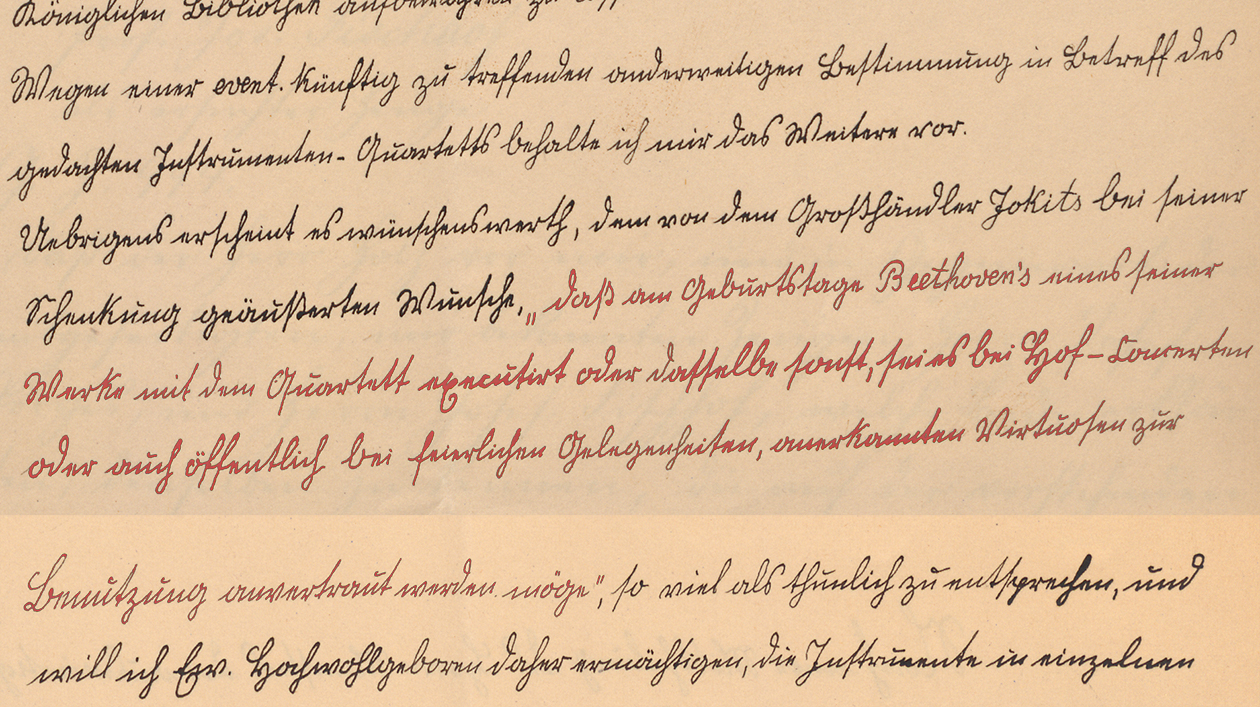 Königlichen Bibliothek aufbewahren zu
Wegen einer event. künftig zu treffenden anderweitigen Bestimmung in Betreff des
gedachten Instrumenten-Quartetts behalte ich mir das Weitere vor.
Uebrigens erscheint es wünschenswerth, dem von dem Großhändler Jokits bei seiner
Schenkung geäußerten Wunsche, „daß am Geburtstage Beethoven's eines seiner
Werke mit dem Quartett executirt oder dasselbe sonst, sei es bei Hof-Concerten
oder auch öffentlich bei feierlichen Gelegenheiten, anerkannten Virtuosen zur
Benutzung anvertraut werden möge", so viel als thunlich zu entsprechen, und
will ich Ew. Hochwohlgeboren daher ermächtigen, die Instrumente in einzelnen